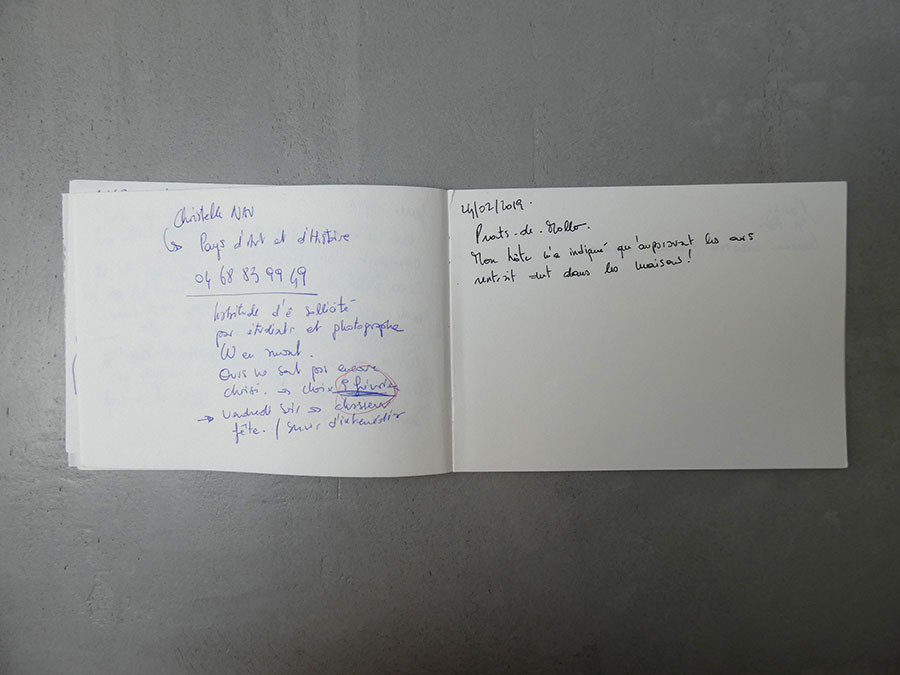 Christelle NAU
↳ Pays d'Art et d'Histoire
04 68 83 99 49
habitude d'ê sollicité
par étudiants et photographe
W en
Ours ne sont pas encore
choisi. → choix 9 février
→ vendredi soir → dossier
fête. / d'intermédiaire
24/02/2019.
Prats-de-Mollo.
Mon hôte m'a indiqué qu'auparavant les ours
rentraient dans les maisons !